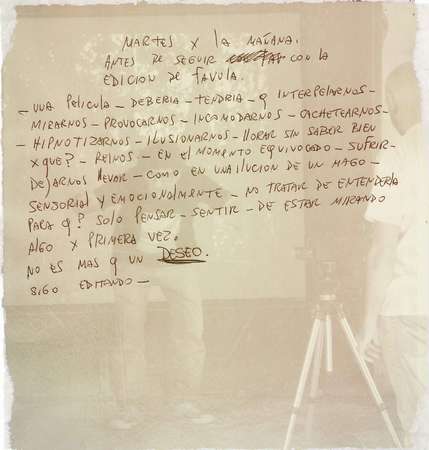 MARTES X la MAÑANA.
ANTES DE SEGUIR con la
EDICION DE FAVULA.
- UNA PELICULA - DEBERIA - TENDRIA - Q INTERPELARNOS -
MIRARNOS - PROVOCARNOS - INCOMODARNOS - CACHETEARNOS -
- HIPNOTIZARNOS - ILUSIONARNOS - llorar SIN SABER BIEN
XQUE? - REIRNOS - EN el MOMENTO EQUIVOCADO - SUFRIR -
DEJARNOS llevar - COMO EN UNA ILUCION DE UN MAGO -
SENSORIAL Y EMOCIONALMENTE - NO TRATAR DE ENTENDERLA
PARA Q? SOLO PENSAR - SENTIR - DE ESTAR MIRANDO
ALGO X PRIMERA VEZ.
NO ES MAS Q UN DESEO.
SIGO EDITANDO -